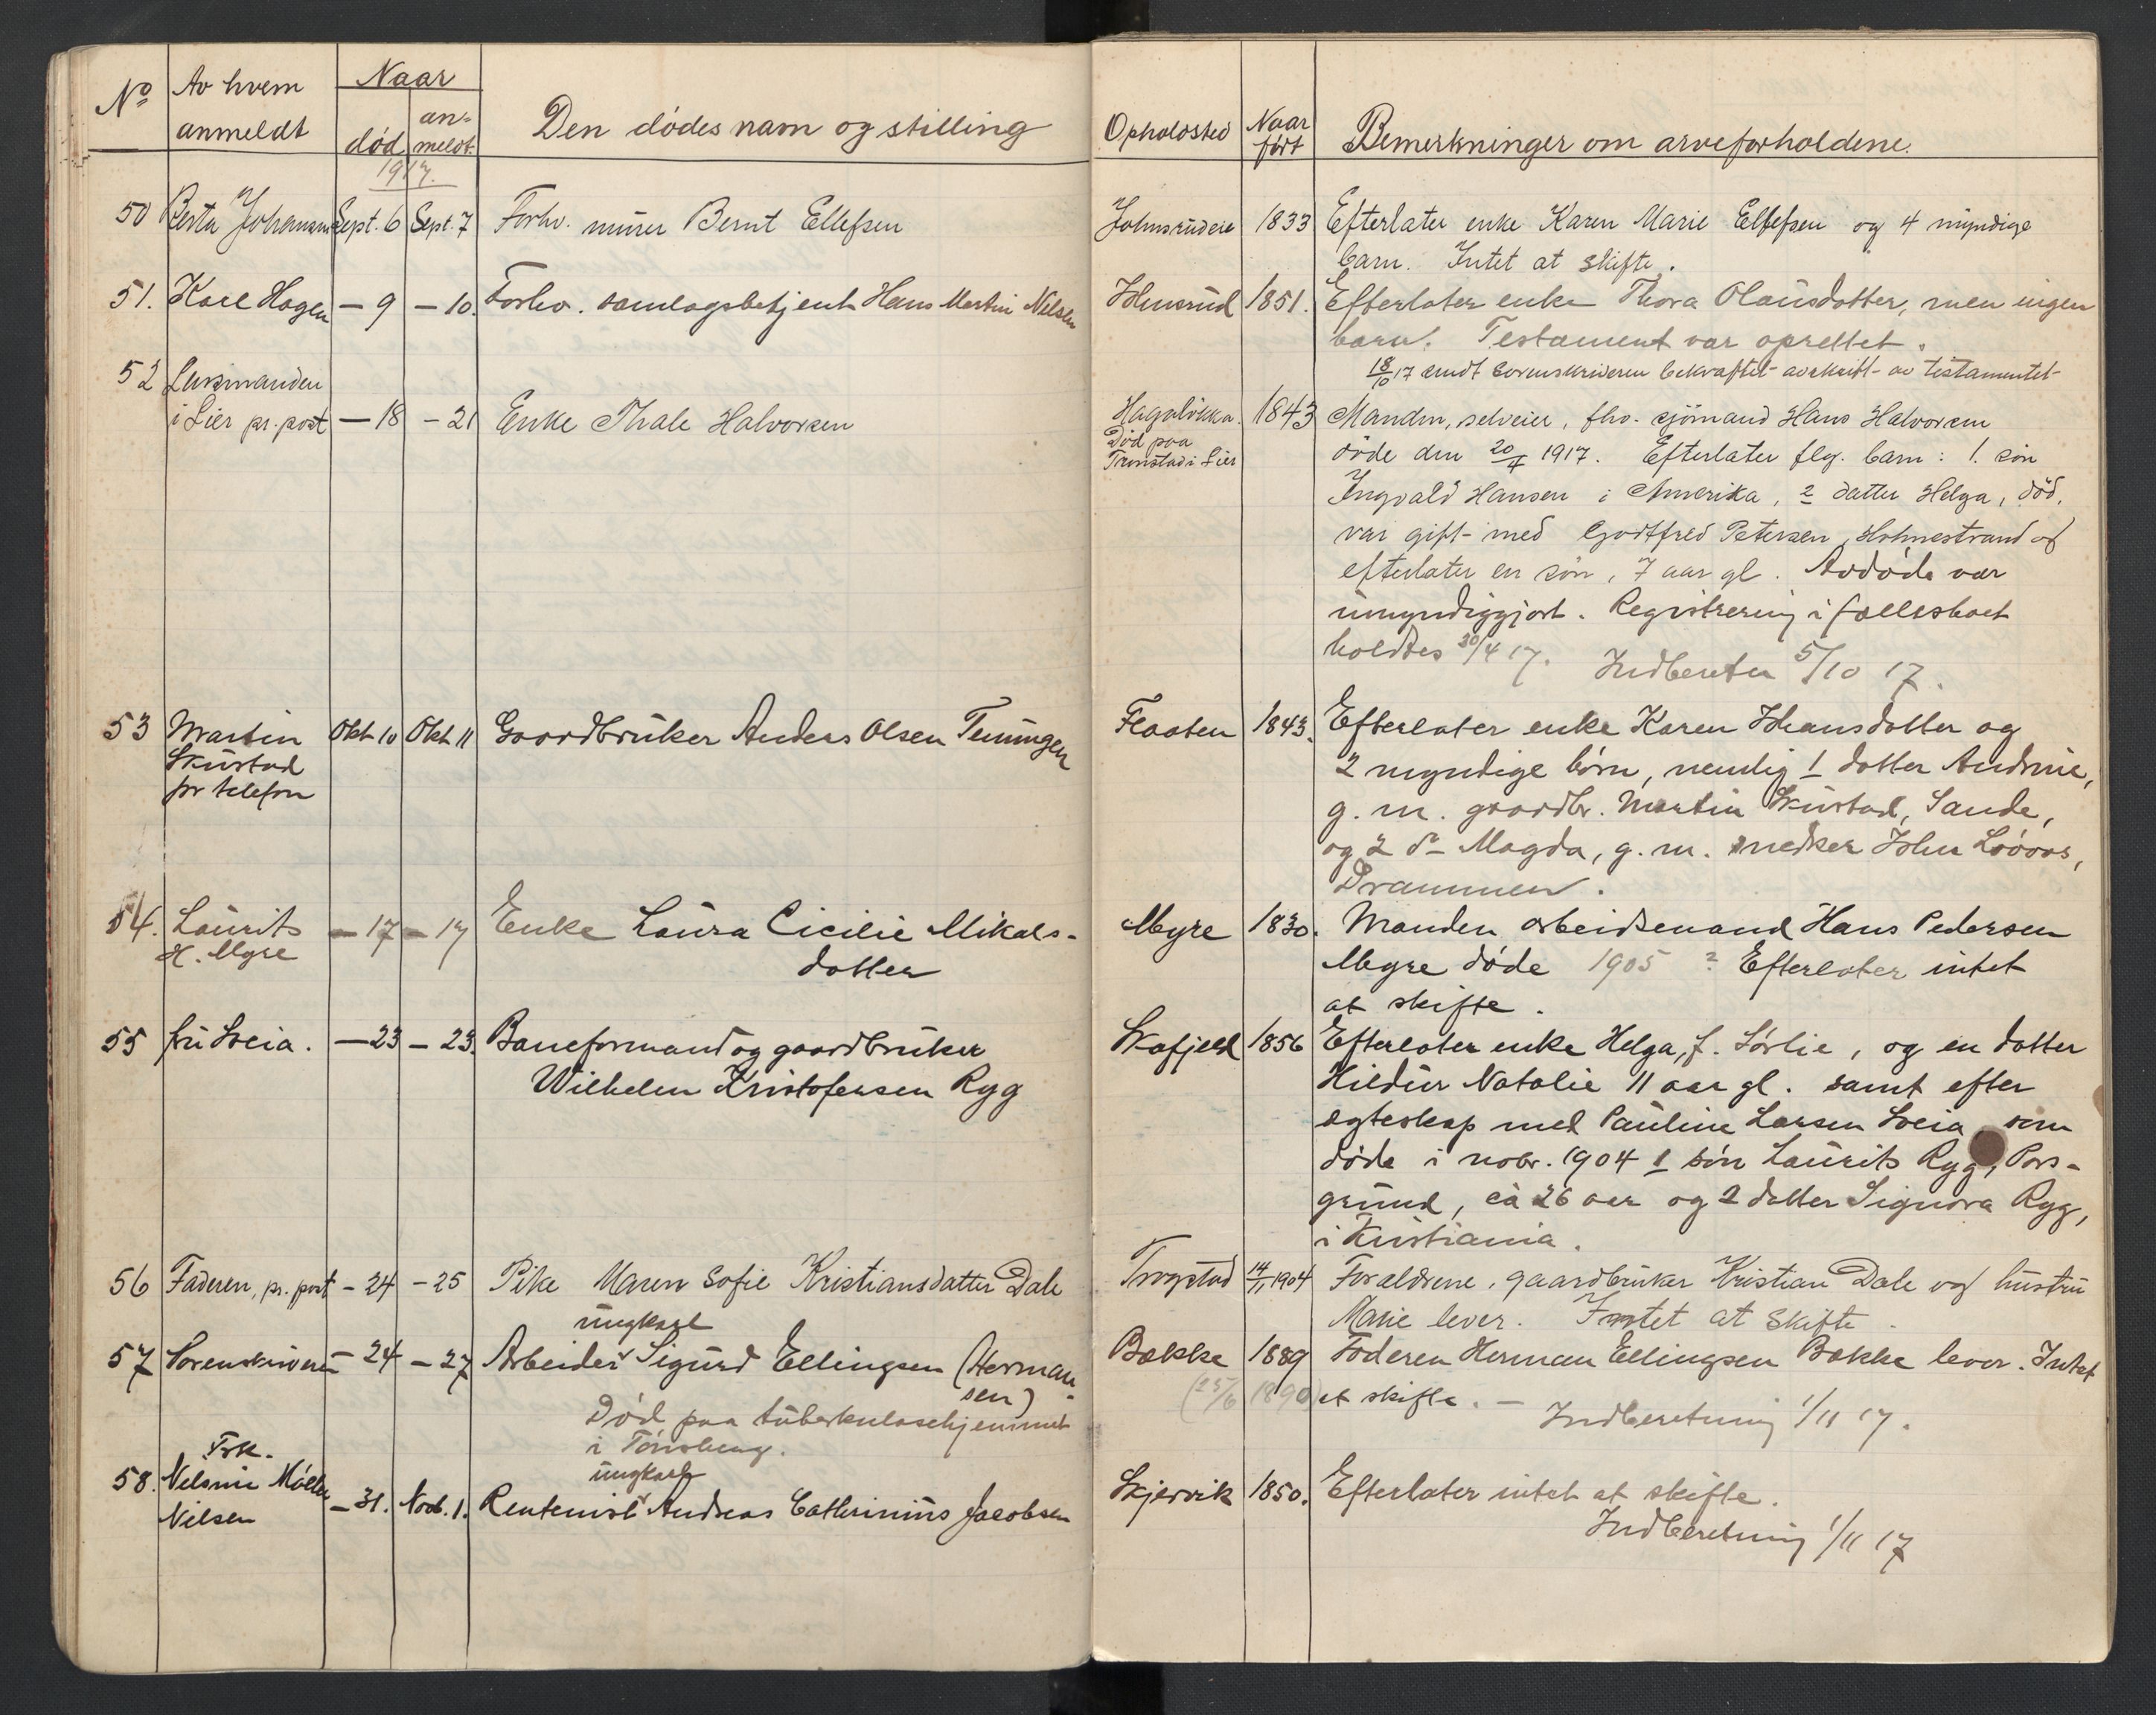 No
Av hvem anmeldt
Naar
død
an-
meldt.
Den dødes navn og stilling
1917.
50 Berta Johansen Sept. 6 Sept. 7 Forhv. murer Bernt Ellefsen
51. Karl Hagen — 9 — 10. Forhv. samlagsbetjent Hans Martin Nilsen
52 Lensmanden
i Lier pr. post — 18 — 21 Enke Thale Halvorsen
53 Martin Okt 10 Okt 11 Gaardbruker Anders Olsen Teningen
Skustad
pr telefon
54. Laurits — 17 — 17 Enke Laura Cicilie Mikals-
H. Myre datter
55 fru Sveia. — 23 — 23. Baneformand og gaardbruker
Wilhelm Kristofersen Ryg
56 Faderen, pr. post — 24 — 25 Pike Maren Sofie Kristiansdatter Dale
ungkarl
57 Sorenskriveren — 24 — 27 Arbeider Sigurd Ellingsen (Herman-
sen)
Død paa tuberkulosehjemmet
i Tønsberg.
Frk. ungkarl
58. Nelsine Møller
Nilsen — 31. Nov. 1. Rentenist Andreas Cathrinius Jacobsen
Opholdsted
Naar
født
Bemerkninger om arveforholdene.
Johnsrudeie 1833 Efterlater enke Karen Marie Ellefsen og 4 myndige
barn. Intet at skifte.
Johnsrud 1851. Efterlater enke Thora Olausdatter, men ingen
barn. Testament var oprettet.
18/10 17 sendt sorenskriveren bekræftet avskrift av testamentet
Hagaløkka. 1843 Manden, selveier, fhv. sjömand Hans Halvorsen
Død paa
Tronstad i Lier
døde den 20/4 1917. Efterlater flg. barn: 1. søn
Ingvald Hansen i Amerika, 2 datter Helga, død,
var gift med Godtfred Petersen, Holmestrand og
efterlater en søn, 7 aar gl. Avdøde var
umyndiggjort. Registrering i fællesboet
holdtes 30/4 17. Indberetn 5/10 17.
Flaaten 1843. Efterlater enke Karen Johansdatter og
2 myndige børn, nemlig 1 datter Andrine,
g. m. gaardbr. Martin Skustad, Sande,
og 2 do Magda, g. m. snedker John Løvaas,
Drammen.
Myre 1830. Manden arbeidsmand Hans Pedersen
Myre døde 1905 ? Efterlater intet
at skifte.
Skafjeld 1856 Efterlater enke Helga, f. Sørlie, og en datter
Hildur Natalie 11 aar gl. samt efter
egteskap med Pauline Larsen Sveia som
døde i novbr. 1904 1 søn Laurits Ryg, Pors-
grund, ca 26 aar og 2 datter Signora Ryg,
i Kristiania.
Trogstad 14/11 1904 Forældrene, gaardbruker Kristian Dale og hustru
Marie lever. Intet at skifte.
Bække 1889 Faderen Herman Ellingsen Bække lever. Intet
(25/6 1890) at skifte. — Indberetning 1/11 17.
Skjervik 1850. Efterlater intet at skifte.
Indberetning 1/11 17